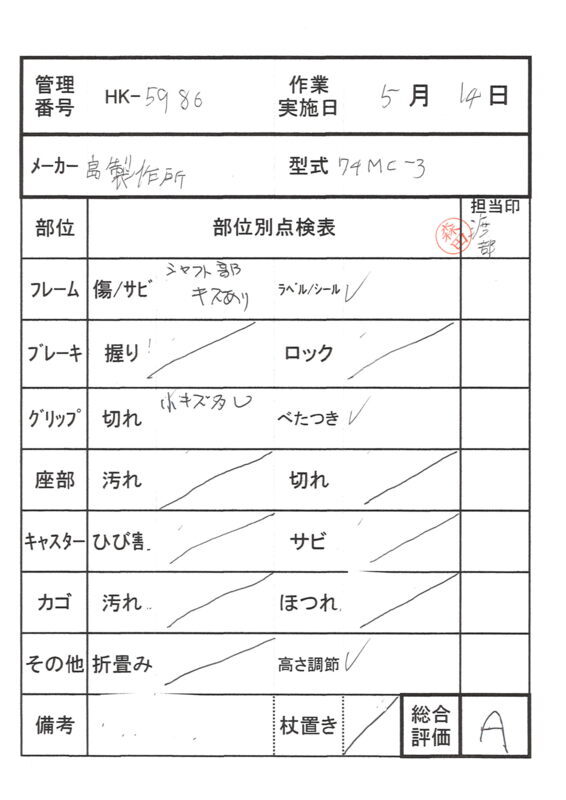 管理番号 HK-5986 作業実施日 5月14日
メーカー 島製作所 型式 74MC-3
部位 部位別点検表 担当印 渡部 森田
フレーム 傷/サビ シャフト部 キズあり ラベル/シール ✓
ブレーキ 握り ロック
グリップ 切れ 小キズ多し べたつき ✓
座部 汚れ 切れ
キャスター ひび割 サビ
カゴ 汚れ ほつれ
その他 折畳み 高さ調節 ✓
備考 杖置き 総合評価 A